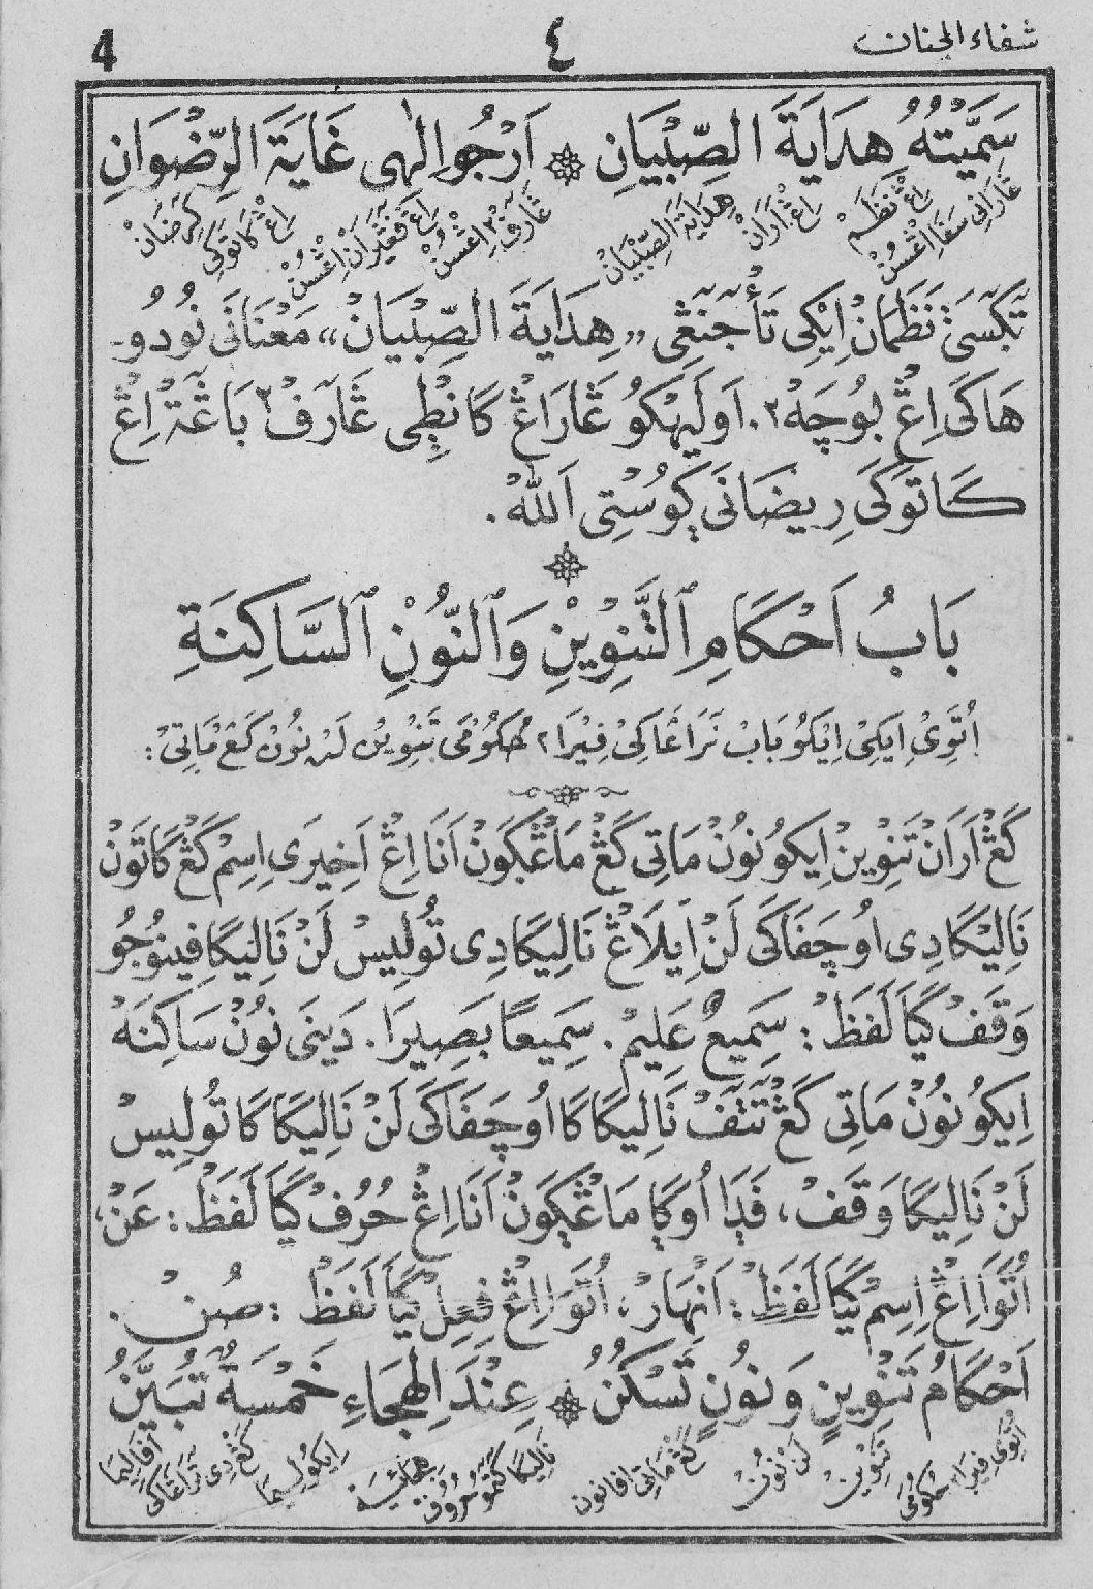 شفاء الجنان
٤
4
سَمَّيْتُهُ هِدَايَةَ الصِّبْيَانِ ۞ اَرْجُو اِلٰهِى غَايَةَ الرِّضْوَانِ
تَڮَسَىْ نَظَمَانْ اِيْكِى تَأْ جَنَڠِى «هِدَايَةَ الصِّبْيَانْ» مَعْنَانَى نُودُو-
هَاكَى اِڠْ بُوچَهْ٢. اَولَيهْكُو ڠَارَاڠْ كَانْطِى ڠَارَفْ٢ بَاڠَةْ اِڠْ
كَاتَوكَى رِيضَانَى ڮُوسْتِى اَللّٰهْ.
بَابُ اَحْكَامِ ٱلتَّنْوِيْنِ وَٱلنُّوْنِ ٱلسَّاكِنَةِ
اُتَوِىْ اِيكِىْ اِيْكُو بَابْ نَرَاڠَاكَىْ فِيْرَا٢ حُكُومَى تَنْوِيْن لَنْ نُونْ كَڠْ مَاتِىْ:
كَڠْ اَرَانْ تَنْوِيْن اِيكُو نُونْ مَاتِى كَڠْ مَاڠْڮَونْ اَنَا اِڠْ اَخِيرَى اِسِمْ كَڠْ كَاتَونْ
نَالِيْكَا دِى اُوچَفَاكَى لَنْ اِيلَاڠْ نَالِيكَا دِى تُولِيسْ لَنْ نَالِيكَا فِينُوجُو
وَقَفْ كَيَا لَفَظْ: سَمِيعٌ عَلِيمْ. سَمِيعًا بَصِيرَا. دَينَى نُونْ سَاكِنَهْ
اِيكُو نُونْ مَاتِى كَڠْ تَتَفْ نَالِيكَا كَا اُوچَفَاكَى لَنْ نَالِيكَا كَا تُولِيسْ
لَنْ نَالِيكَا وَقَفْ، فَڊَا اُوڮَا مَاڠْڮَونْ اَنَا اِڠْ حُرُفْ كَيَا لَفَظْ: عَنْ،
اُتَوَا اِڠْ اِسِمْ كَيَا لَفَظْ: اَنْهَارْ، اُتَوَا اِڠْ فِعِلْ كَيَا لَفَظْ: صُنْ.
اَحْكَامُ تَنْوِينٍ وَنُونٍ تَسْكُنُ ۞ عِنْدَ الْهِجَاءِ خَمْسَةٌ تُبَيَّنُ